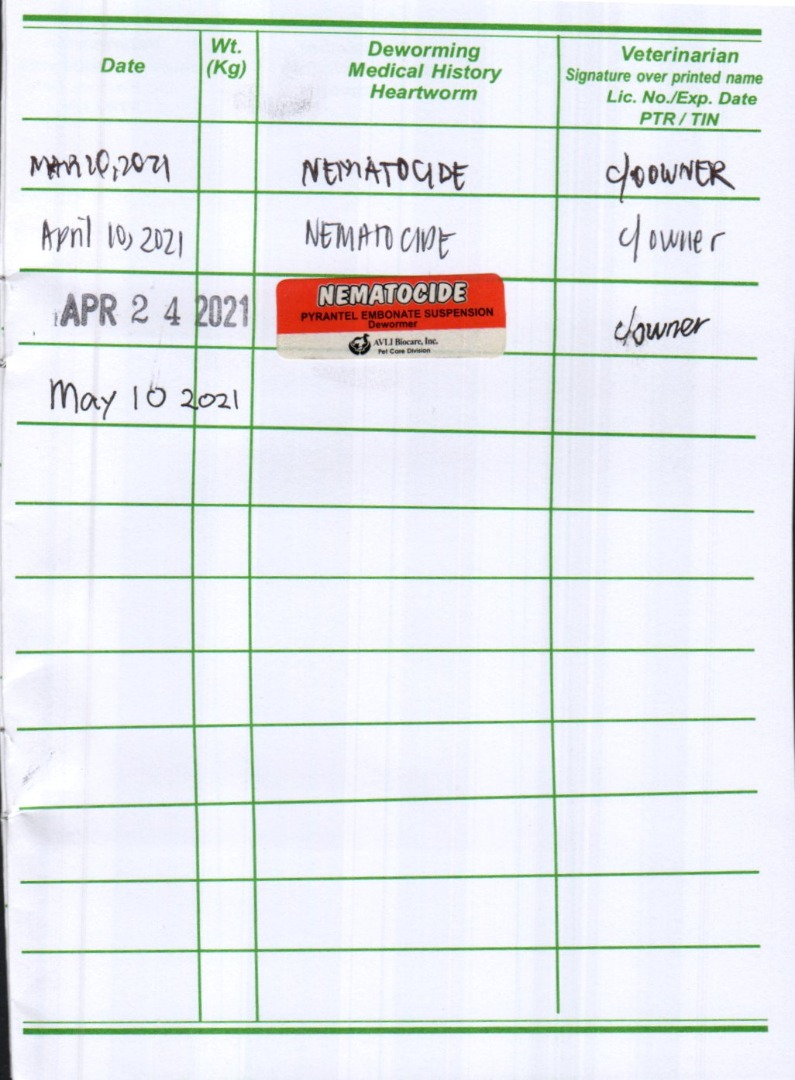 Date
Wt.
(Kg)
Deworming
Medical History
Heartworm
Veterinarian
Signature over printed name
Lic. No./Exp. Date
PTR / TIN
MAR 20, 2021
NEMATOCIDE
c/o OWNER
April 10, 2021
NEMATOCIDE
c/owner
APR 24 2021
NEMATOCIDE
PYRANTEL EMBONATE SUSPENSION
Dewormer
AVLI Biocare, Inc.
Pet Care Division
c/owner
May 10 2021